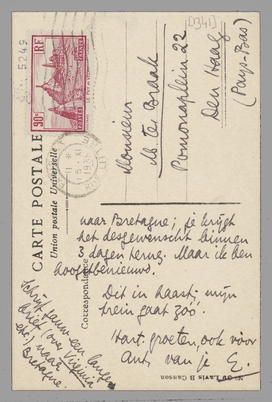 [1341]
Monsieur
M. ter Braak
Pomonaplein 22
Den Haag
(Pays-Bas)
5249
90c RF
CARTE POSTALE
Union postale Universelle
Correspondance
naar Bretagne; je krijgt
het desgewenscht binnen
3 dagen terug. Maar ik ben
hooftbenieuwd.
Dit in haast; mijn
trein gaat zoo.
Hart. groeten, ook voor
Ant, van je E.
Schrijf gauw een langen
brief over Vienna
etc.) naar
Bretagne.